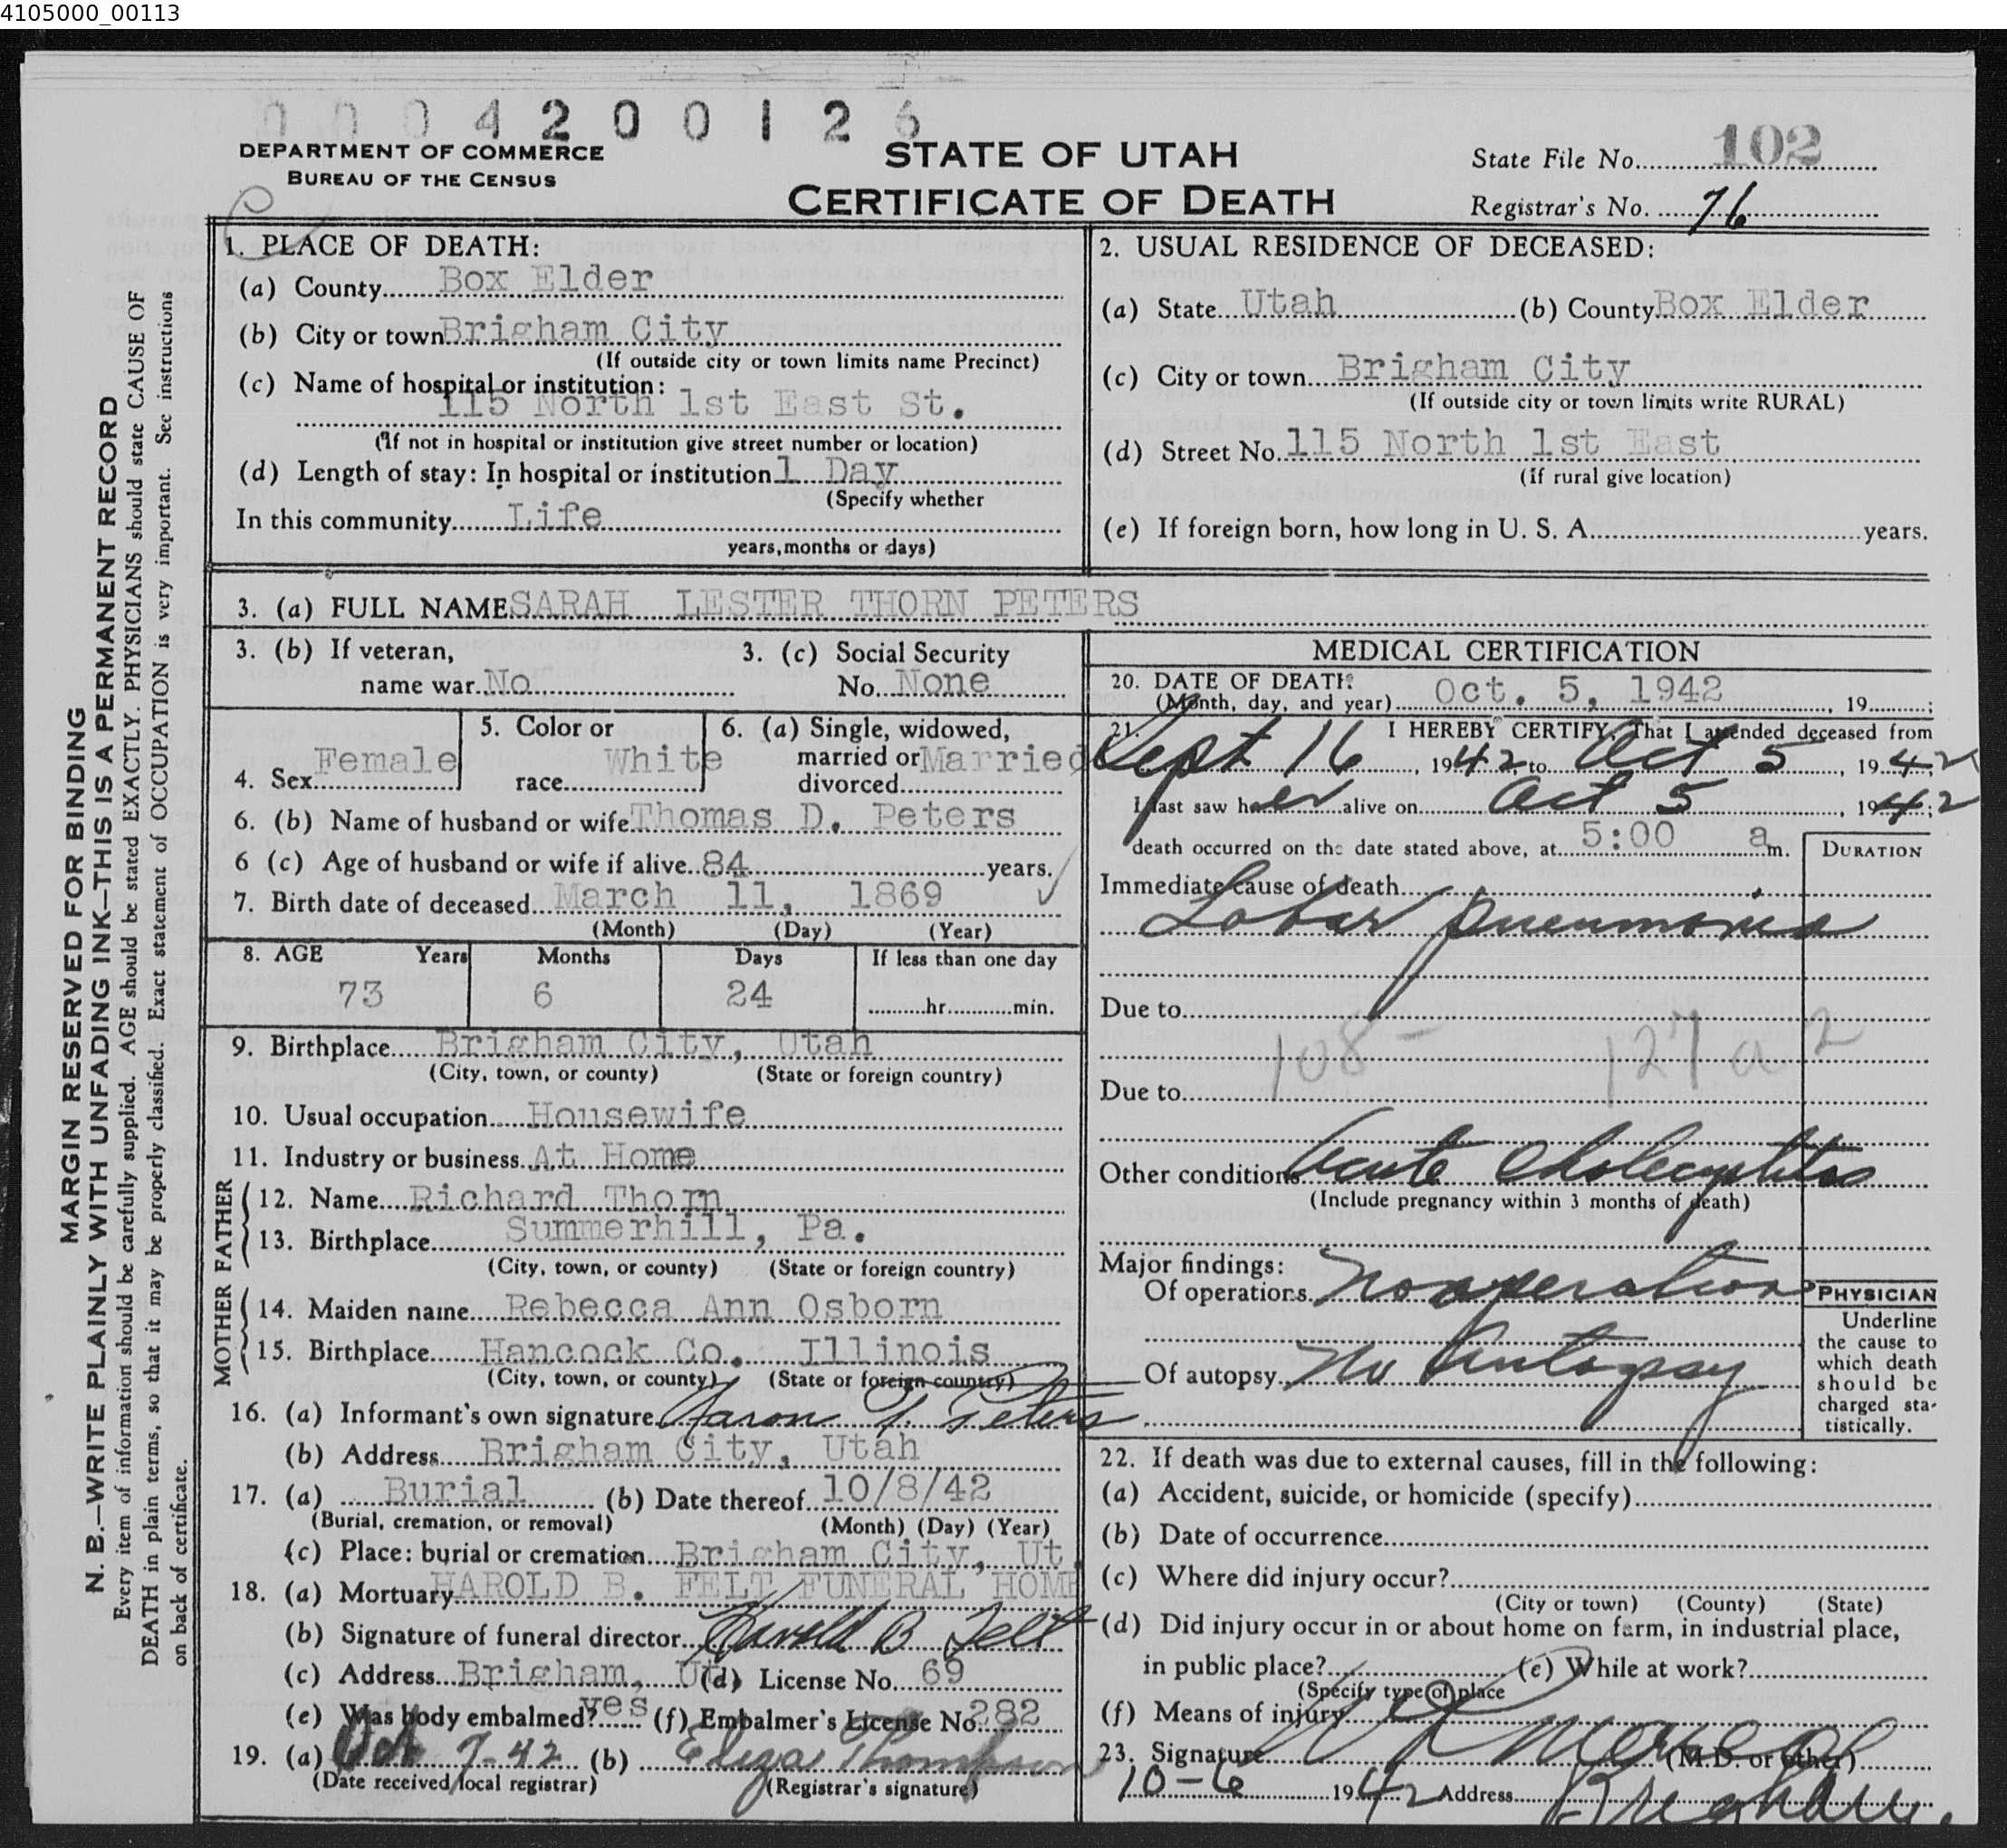 4105000_00113
0004200126
DEPARTMENT OF COMMERCE
BUREAU OF THE CENSUS
STATE OF UTAH
CERTIFICATE OF DEATH
State File No. 102
Registrar's No. 76
MARGIN RESERVED FOR BINDING
N. B.—WRITE PLAINLY WITH UNFADING INK—THIS IS A PERMANENT RECORD
Every item of information should be carefully supplied. AGE should be stated EXACTLY. PHYSICIANS should state CAUSE OF
DEATH in plain terms, so that it may be properly classified. Exact statement of OCCUPATION is very important. See instructions
on back of certificate.
1. PLACE OF DEATH:
(a) County Box Elder
(b) City or town Brigham City
(If outside city or town limits name Precinct)
(c) Name of hospital or institution:
115 North 1st East St.
(If not in hospital or institution give street number or location)
(d) Length of stay: In hospital or institution 1 Day
(Specify whether
In this community Life
years, months or days)
2. USUAL RESIDENCE OF DECEASED:
(a) State Utah (b) County Box Elder
(c) City or town Brigham City
(If outside city or town limits write RURAL)
(d) Street No. 115 North 1st East
(If rural give location)
(e) If foreign born, how long in U. S. A. years.
3. (a) FULL NAME SARAH LESTER THORN PETERS
3. (b) If veteran,
name war No
3. (c) Social Security
No. None
4. Sex Female
5. Color or
race White
6. (a) Single, widowed,
married or Married
divorced
6. (b) Name of husband or wife Thomas D. Peters
6 (c) Age of husband or wife if alive 84 years.
7. Birth date of deceased March 11, 1869
(Month) (Day) (Year)
8. AGE Years Months Days If less than one day
73 6 24 hr. min.
9. Birthplace Brigham City, Utah
(City, town, or county) (State or foreign country)
10. Usual occupation Housewife
11. Industry or business At Home
FATHER
12. Name Richard Thorn
13. Birthplace Summerhill, Pa.
(City, town, or county) (State or foreign country)
MOTHER
14. Maiden name Rebecca Ann Osborn
15. Birthplace Hancock Co. Illinois
(City, town, or county) (State or foreign country)
16. (a) Informant's own signature Aaron T. Peters
(b) Address Brigham City, Utah
17. (a) Burial (b) Date thereof 10/8/42
(Burial, cremation, or removal) (Month) (Day) (Year)
(c) Place: burial or cremation Brigham City, Ut.
18. (a) Mortuary HAROLD B. FELT FUNERAL HOME
(b) Signature of funeral director Harold B Felt
(c) Address Brigham, Ut (d) License No. 69
(e) Was body embalmed? yes (f) Embalmer's License No. 282
19. (a) Oct 7-42 (b) Eliza Thompson
(Date received local registrar) (Registrar's signature)
MEDICAL CERTIFICATION
20. DATE OF DEATH:
(Month, day, and year) Oct. 5, 1942, 19 ;
21. I HEREBY CERTIFY, That I attended deceased from
Sept 16, 1942, to Oct 5, 1942
I last saw her alive on Oct 5 1942
death occurred on the date stated above, at 5:00 a m.
DURATION
Immediate cause of death
Lobar pneumonia
Due to
108- 127a2
Due to
Other conditions Acute Cholecystitis
(Include pregnancy within 3 months of death)
Major findings:
Of operations No operation
Of autopsy No Autopsy
PHYSICIAN
Underline
the cause to
which death
should be
charged sta-
tistically.
22. If death was due to external causes, fill in the following:
(a) Accident, suicide, or homicide (specify)
(b) Date of occurrence
(c) Where did injury occur?
(City or town) (County) (State)
(d) Did injury occur in or about home on farm, in industrial place,
in public place? (e) While at work?
(Specify type of place
(f) Means of injury
23. Signature (M.D. or other)
10-6 1942 Address Brigham.